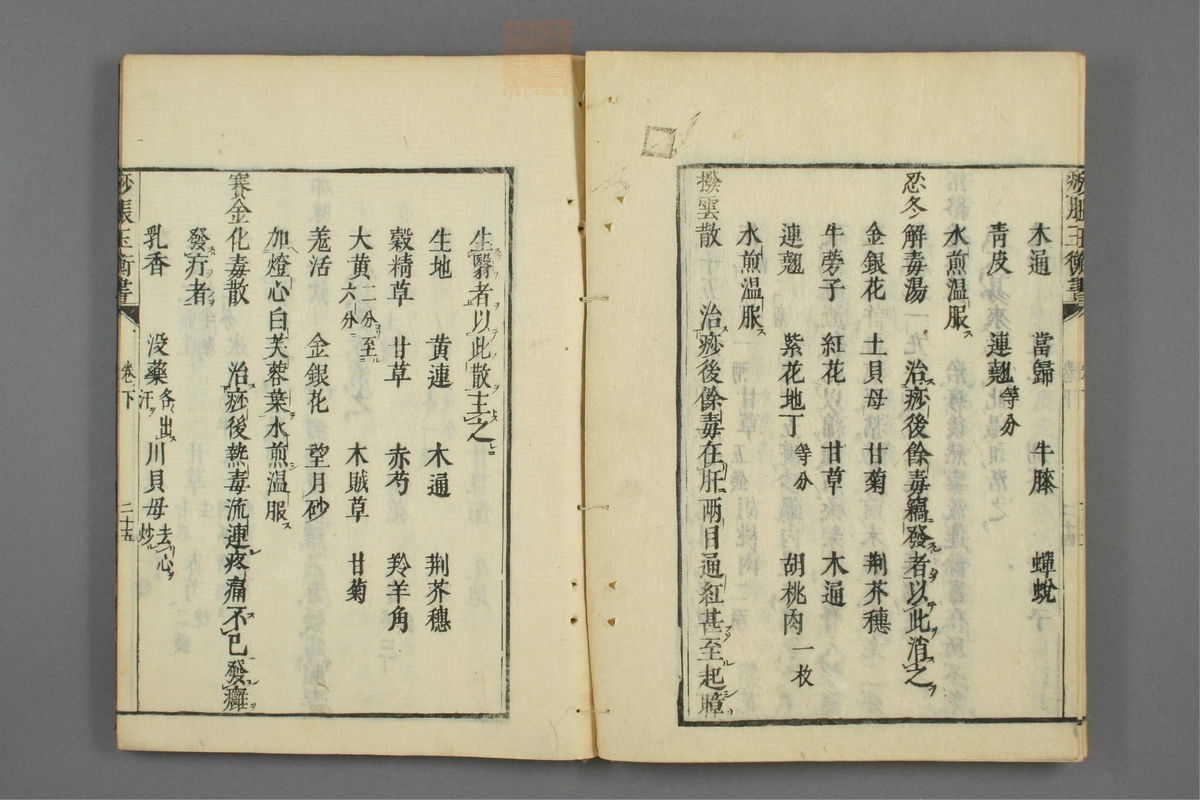 痧脹玉衡書
木通 當歸 牛膝 蟬蛻
青皮 連翹等分
水煎温服ス
忍冬解毒湯 治痧後餘毒竊發者以此消之
金銀花 土貝母 甘菊 荆芥穗
牛蒡子 紅花 甘草 木通
連翹 紫花地丁等分 胡桃肉一枚
水煎温服ス
撥雲散 治痧後餘毒在肝兩目通紅甚至起瞕
生翳者以此散主之
生地 黄連 木通 荆芥穗
穀精草 甘草 赤芍 羚羊角
大黄二分至六分 木賊草 甘菊
羗活 金銀花 望月砂
加燈心白芙蓉葉水煎温服ス
賽金化毒散 治痧後熱毒流連疼痛不已發癰
發疔者
乳香 没藥各出汗 川貝母去心炒
痧脹玉衡書 卷下 二十五